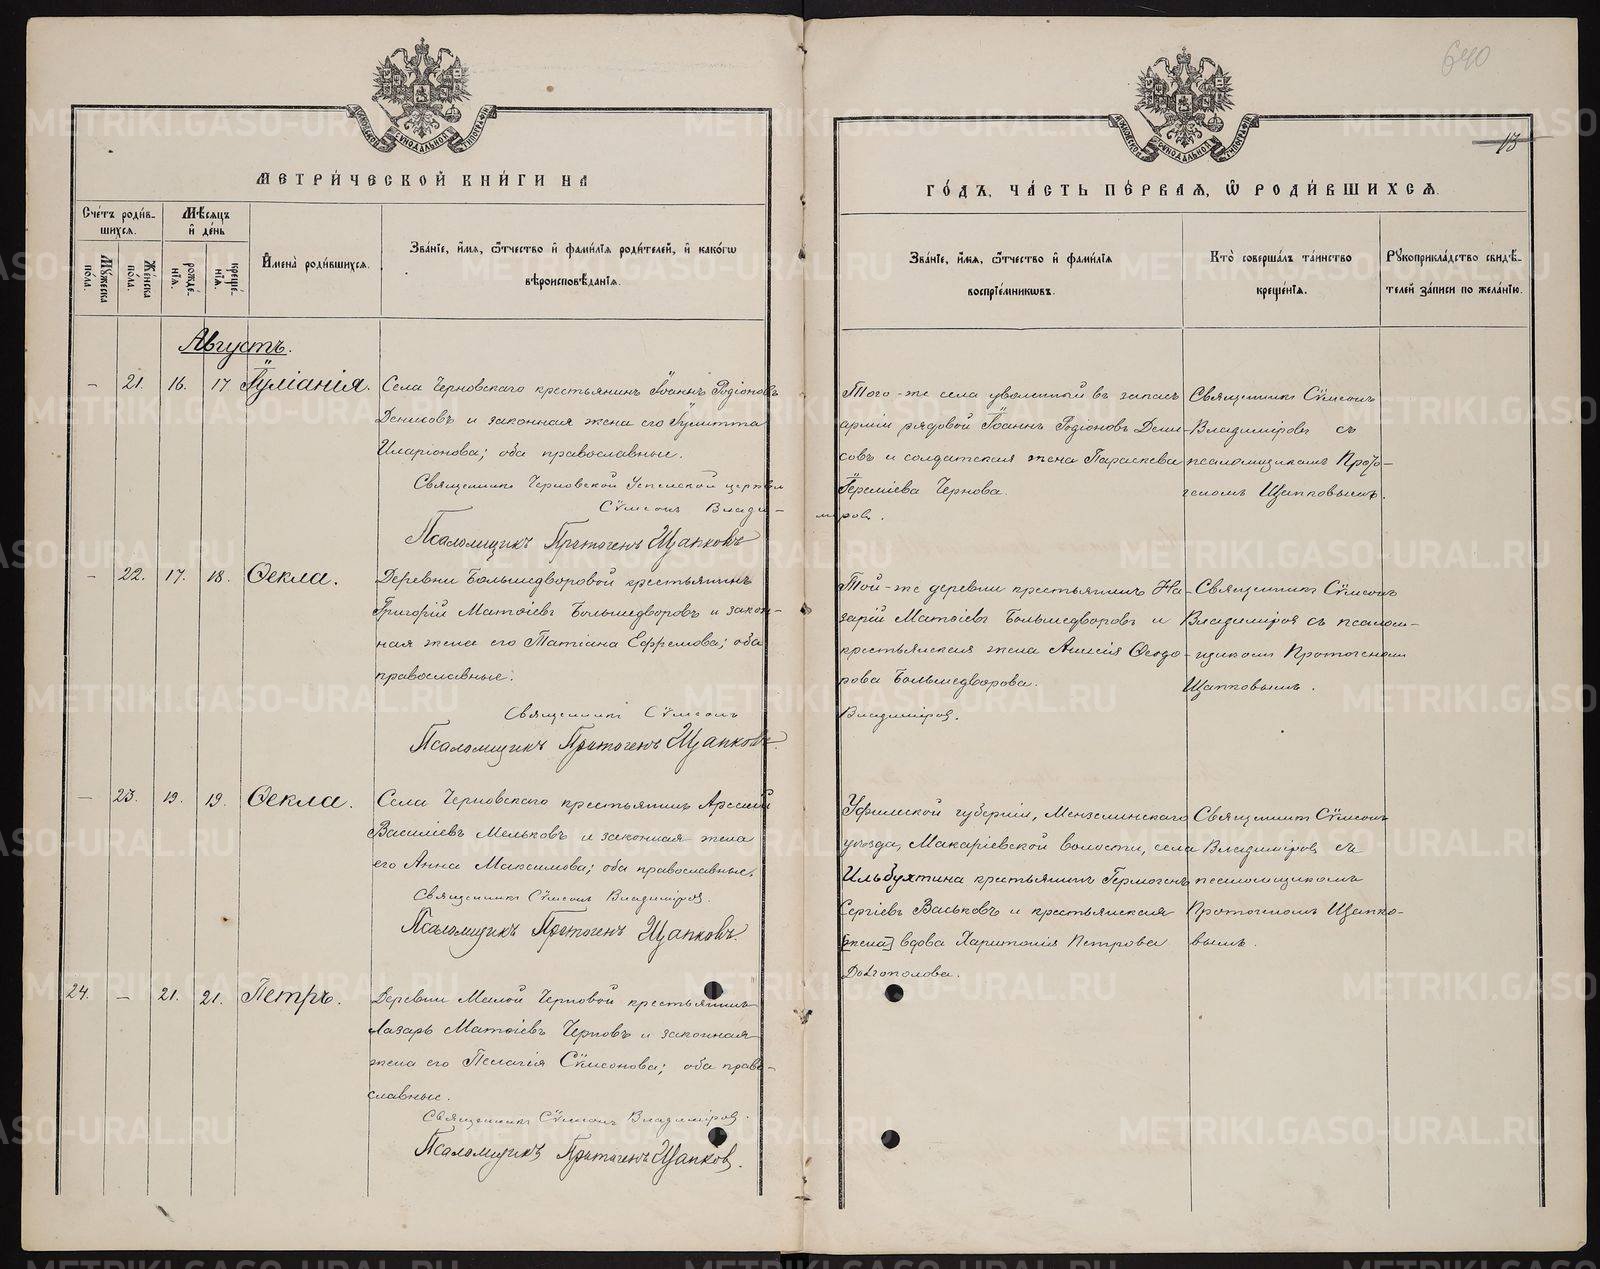 640
13
МЕТРИ́ЧЕСКОЙ КНИ́ГИ НА
ГО́ДЪ, ЧА́СТЬ ПЕ́РВАЯ, Ѿ РОДИ́ВШИХСЯ.
Сче́тъ роди́в-
шихся.
Мѣ́сяцъ
и де́нь
Мꙋ́жеска
по́ла.
Же́нска
по́ла.
рожде́-
нїя.
креще́-
нїя.
И҆мена̀ роди́вшихся.
Зва́нїе, и҆́мя, ѻ҆́тчество и҆ фами́лїя роди́телей, и҆ како́гѡ
вѣроисповѣ́данїя.
Зва́нїе, и҆́мя, ѻ҆́тчество и҆ фами́лїя
воспрїе́мникѡвъ.
Кто̀ соверша́лъ та́инство
креще́нїя.
Рꙋкоприкла́дство свидѣ́-
телей за́писи по жела́нїю.
Августъ.
– 21. 16. 17 Іуліанія.
Села Черновскаго крестьянинъ Іоаннъ Родіоновъ
Денисовъ и законная жена его Іулитта
Иларіонова; оба православные.
Священникъ Черновской Успенской церкви
Сѵмеонъ Влади-
Псаломщикъ Протогенъ Щапковъ
Того-же села уволенный въ запасъ
арміи рядовой Іоаннъ Родіоновъ Дени-
совъ и солдатская жена Параскева
Іереміева Чернова.
міровъ.
Священникъ Сѵмеонъ
Владиміровъ съ
псаломщикомъ Прото-
геномъ Щапковымъ.
– 22. 17. 18. Ѳекла.
Деревни Большедворовой крестьянинъ
Григорій Матѳіевъ Большедворовъ и закон-
ная жена его Татіана Ефремова; оба
православные.
Священникъ Сѵмеонъ
Псаломщикъ Протогенъ Щапковъ.
Той-же деревни крестьянинъ На-
зарій Матѳіевъ Большедворовъ и
крестьянская жена Анисія Ѳеодо-
рова Большедворова.
Владиміровъ.
Священникъ Сѵмеонъ
Владиміровъ съ псалом-
щикомъ Протогеномъ
Щапковымъ.
– 23. 19. 19. Ѳекла.
Села Черновскаго крестьянинъ Арсеній
Василіевъ Мельковъ и законная жена
его Анна Максимова; оба православные.
Священникъ Сѵмеонъ Владиміровъ.
Псаломщикъ Протогенъ Щапковъ.
Уфимской губерніи, Мензелинскаго
уѣзда, Макаріевской волости, села
Ильбухтина крестьянинъ Гермогенъ
Сергіевъ Васьковъ и крестьянская
[жена] вдова Харитонія Петрова
Долгополова.
Священникъ Сѵмеонъ
Владиміровъ съ
псаломщикомъ
Протогеномъ Щапко-
вымъ.
24. – 21. 21. Петръ.
Деревни Малой Черновой крестьянинъ
Лазарь Матѳіевъ Черновъ и законная
жена его Пелагія Сѵмеонова; оба право-
славные.
Священникъ Сѵмеонъ Владиміровъ.
Псаломщикъ Протогенъ Щапковъ.